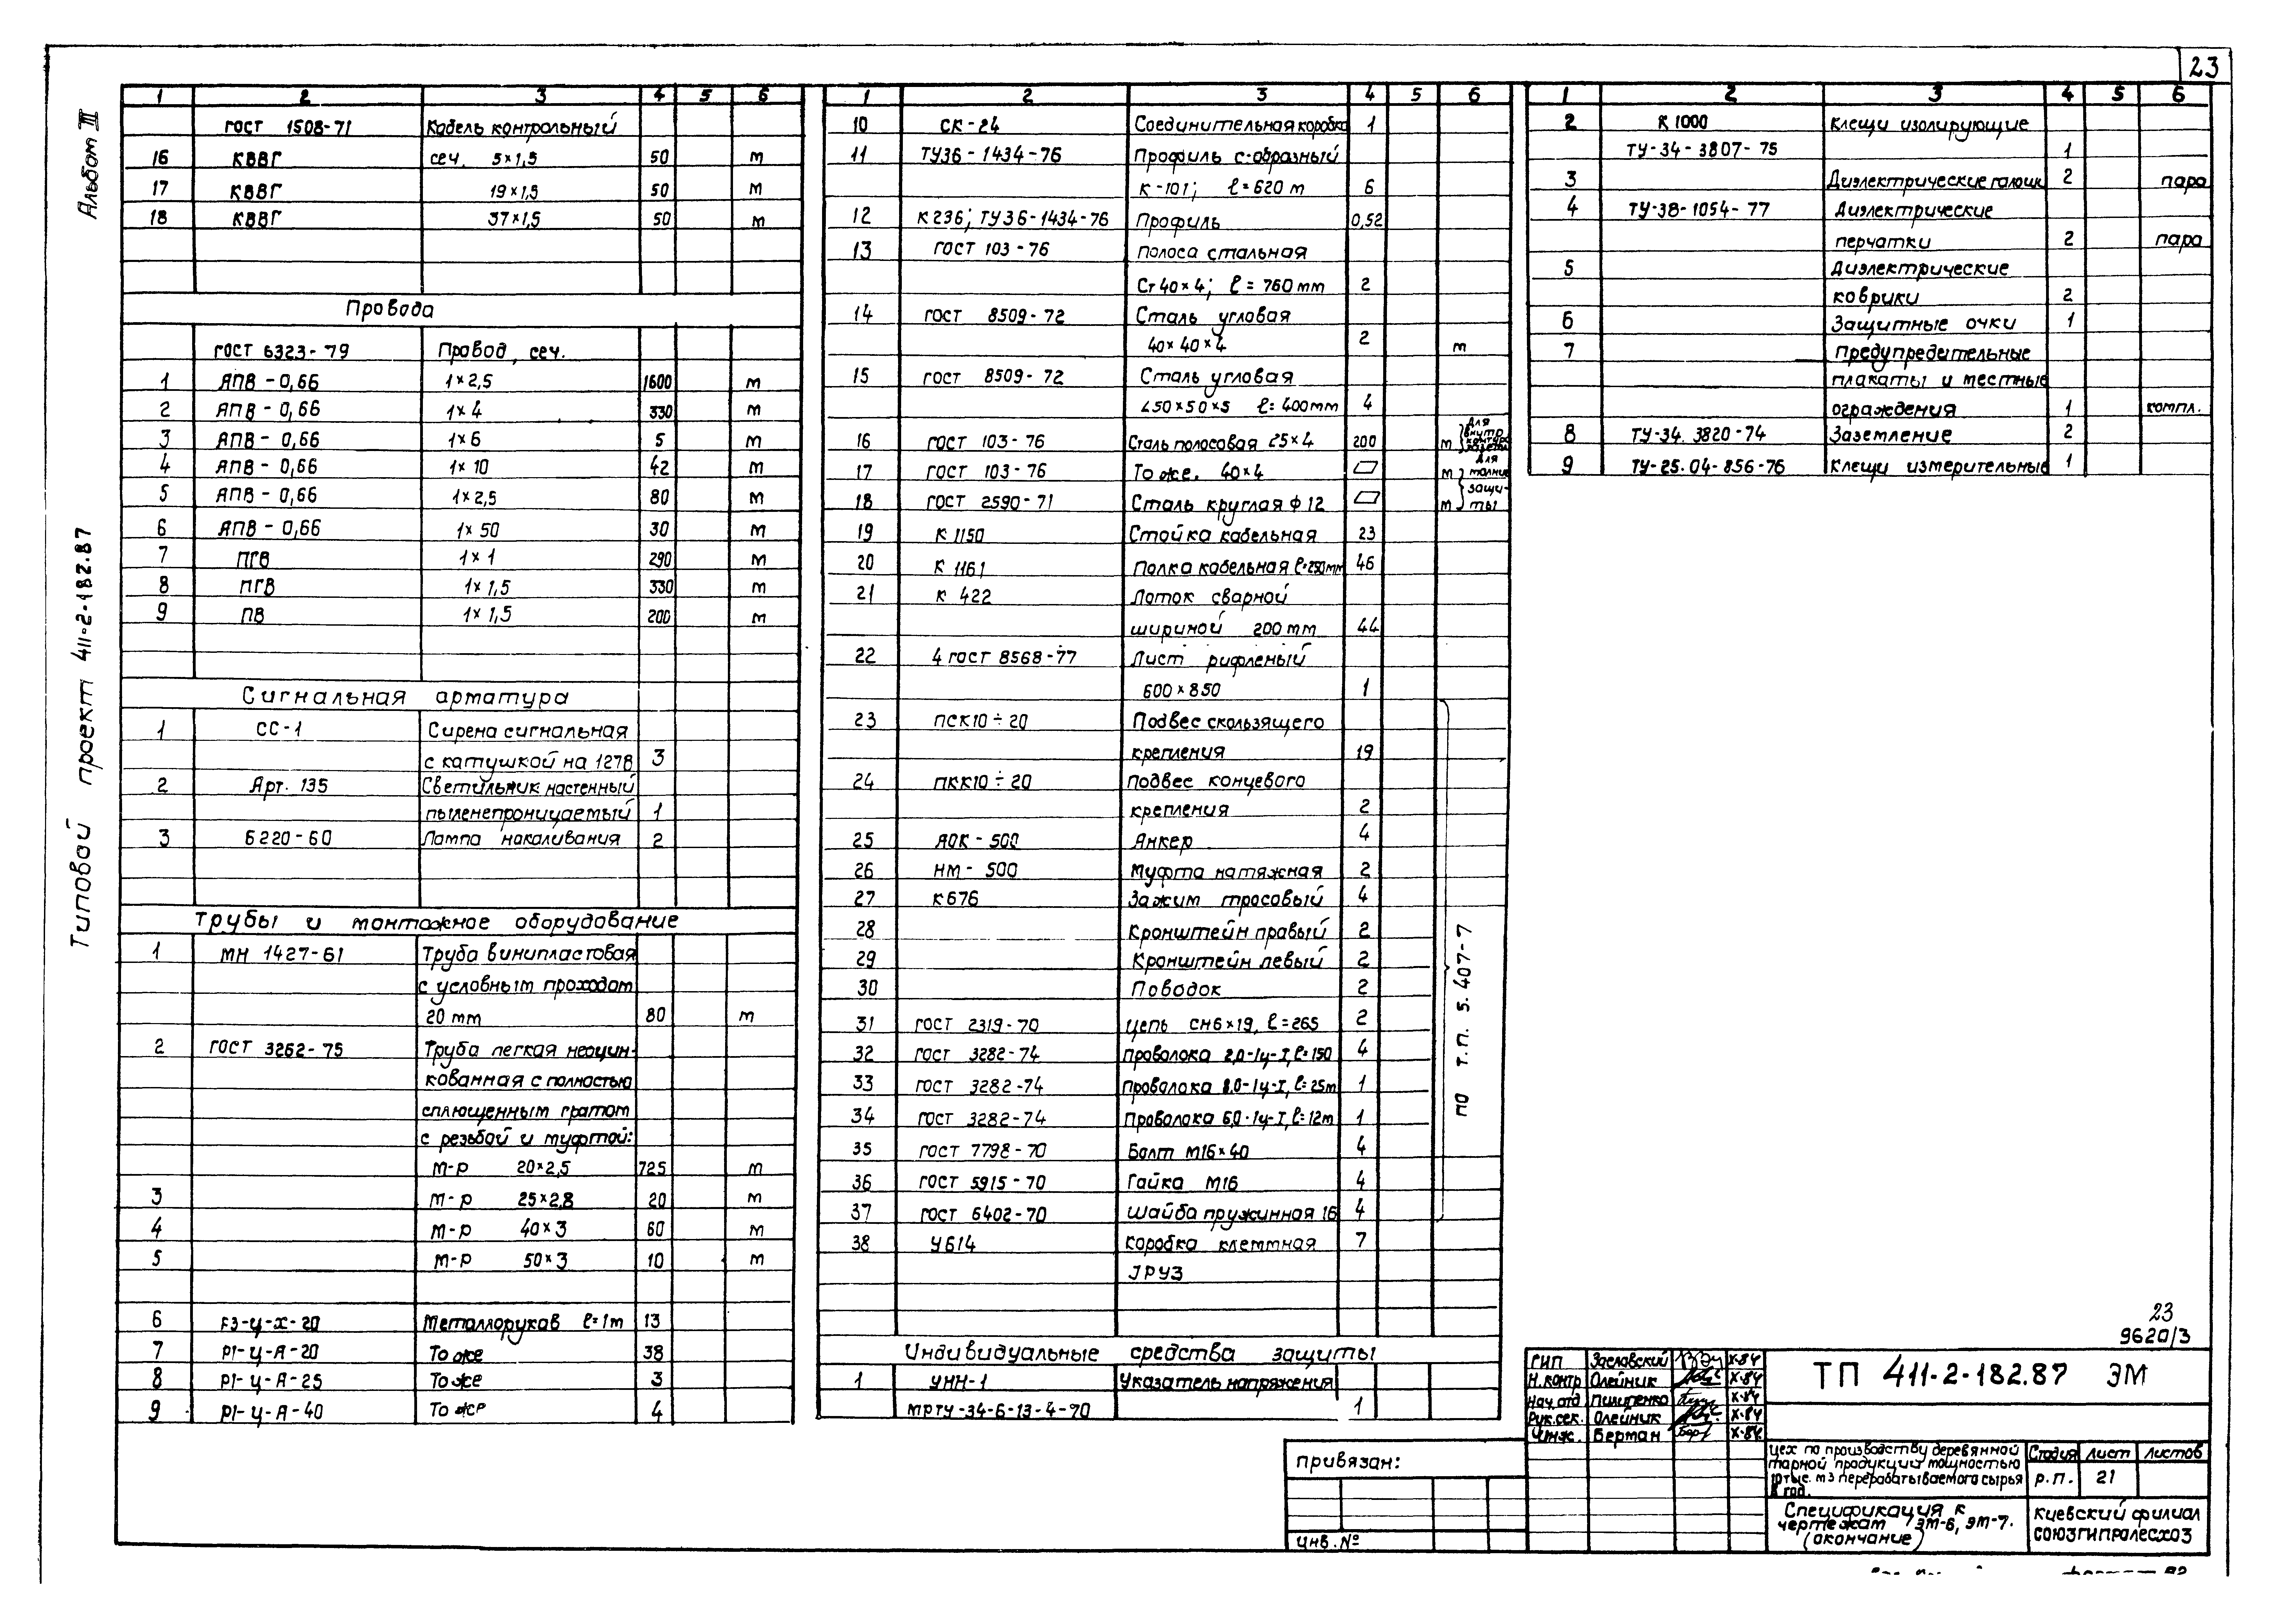 23
Альбом III
Типовой проект 411-2-182.87
1 2 3 4 5 6
ГОСТ 1508-71 Кабель контрольный
16 КВВГ сеч. 5×1,5 50 м
17 КВВГ 19×1,5 50 м
18 КВВГ 37×1,5 50 м
Провода
ГОСТ 6323-79 Провод, сеч.
1 АПВ-0,66 1×2,5 1600 м
2 АПВ-0,66 1×4 330 м
3 АПВ-0,66 1×6 5 м
4 АПВ-0,66 1×10 42 м
5 АПВ-0,66 1×2,5 80 м
6 АПВ-0,66 1×50 30 м
7 ПГВ 1×1 290 м
8 ПГВ 1×1,5 330 м
9 ПВ 1×1,5 200 м
Сигнальная арматура
1 СС-1 Сирена сигнальная
с катушкой на 127В 3
2 Арт. 135 Светильник настенный
пыленепроницаемый 1
3 Б220-60 Лампа накаливания 2
Трубы и монтажное оборудование
1 МН 1427-61 Труба винипластовая
с условным проходом
20 мм 80 м
2 ГОСТ 3262-75 Труба легкая неоцин-
кованная с полностью
сплющенным гратом
с резьбой и муфтой:
м-р 20×2,5 725 м
3 м-р 25×2,8 20 м
4 м-р 40×3 60 м
5 м-р 50×3 10 м
6 РЗ-Ц-Х-20 Металлорукав ℓ=1м 13
7 Р1-Ц-А-20 То же 38
8 Р1-Ц-А-25 То же 3
9 Р1-Ц-А-40 То же 4
1 2 3 4 5 6
10 СК-24 Соединительная коробка 1
11 ТУ36-1434-76 Профиль с-образный
К-101; ℓ=620 м 6
12 К236; ТУ36-1434-76 Профиль 0,52
13 ГОСТ 103-76 Полоса стальная
Ст 40×4; ℓ=760 мм 2
14 ГОСТ 8509-72 Сталь угловая
40×40×4 2 м
15 ГОСТ 8509-72 Сталь угловая
∠50×50×5 ℓ=400мм 4
16 ГОСТ 103-76 Сталь полосовая 25×4 200 м для внутр. контура
17 ГОСТ 103-76 То же. 40×4 м для молние
18 ГОСТ 2590-71 Сталь круглая ф12 м защи-ты
19 К 1150 Стойка кабельная 23
20 К 1161 Полка кабельная ℓ=250мм 46
21 К 422 Лоток сварной
шириной 200 мм 44
22 4 ГОСТ 8568-77 Лист рифленый
600×850 1
23 ПСК10÷20 Подвес скользящего
крепления 19
24 ПКК10÷20 Подвес концевого
крепления 2
25 АОК-500 Анкер 4
26 НМ-500 Муфта натяжная 2
27 К676 Зажим тросовый 4
28 Кронштейн правый 2
29 Кронштейн левый 2
30 Поводок 2
31 ГОСТ 2319-70 Цепь СН6×19, ℓ=265 2
32 ГОСТ 3282-74 Проволока 2,0-1ц-I, ℓ=150 4
33 ГОСТ 3282-74 Проволока 8,0-1ц-I, ℓ=25м 1
34 ГОСТ 3282-74 Проволока 6,0-1ц-I, ℓ=12м 1
35 ГОСТ 7798-70 Болт М16×40 4
36 ГОСТ 5915-70 Гайка М16 4
37 ГОСТ 6402-70 Шайба пружинная 16 4
38 У614 Коробка клеммная 7
IРУЗ
по т.п. 5.407-7
Индивидуальные средства защиты
1 УНН-1 Указатель напряжения
МРТУ-34-6-13-4-70 1
1 2 3 4 5 6
2 К 1000 Клещи изолирующие
ТУ-34-3807-75 1
3 Диэлектрические галоши 2 пара
4 ТУ-38-1054-77 Диэлектрические
перчатки 2 пара
5 Диэлектрические
коврики 2
6 Защитные очки 1
7 Предупредительные
плакаты и местные
ограждения 1 компл.
8 ТУ-34.3820-74 Заземление 2
9 ТУ-25.04-856-76 Клещи измерительные 1
23
9620/3
ГИП Заславский X-84
Н.контр Олейник X-84
Нач.отд Пилипенко X-84
Рук.сек. Олейник X-84
Инж. Берман X-84
ТП 411-2-182.87 ЭМ
Цех по производству деревянной
тарной продукции мощностью
10 тыс. м3 перерабатываемого сырья
в год.
Стадия Лист Листов
Р.П. 21
Спецификация к
чертежам ЭМ-6, ЭМ-7.
(окончание)
Киевский филиал
СОЮЗГИПРОЛЕСХОЗ
Привязан:
Инв. №